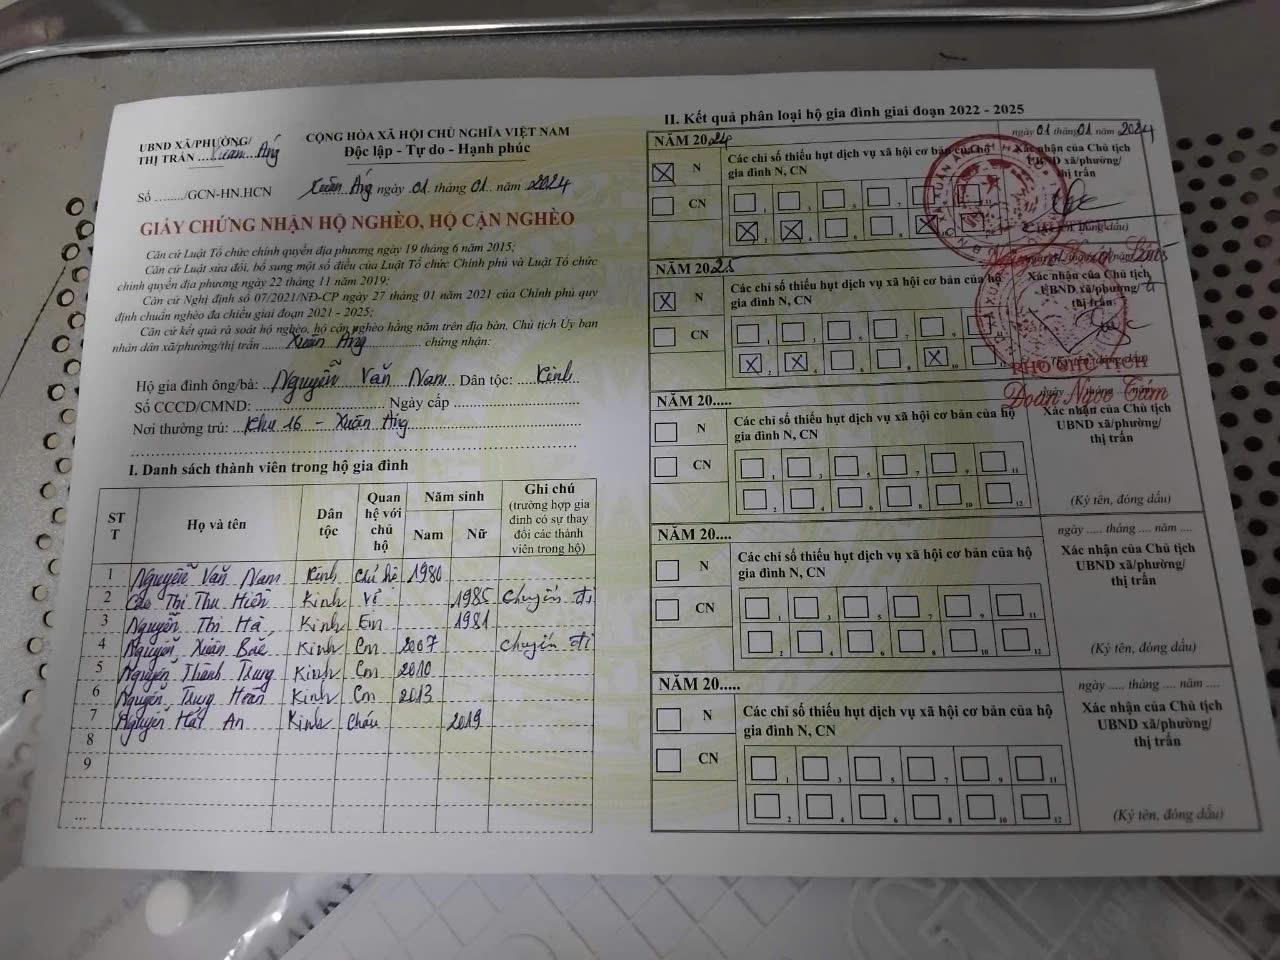 UBND XÃ/PHƯỜNG/
THỊ TRẤN ....Xuân Áng
CỘNG HÒA XÃ HỘI CHỦ NGHĨA VIỆT NAM
Độc lập - Tự do - Hạnh phúc
Số ......../GCN-HN.HCN
Xuân Áng ngày 01 tháng 01 năm 2024
GIẤY CHỨNG NHẬN HỘ NGHÈO, HỘ CẬN NGHÈO
Căn cứ Luật Tổ chức chính quyền địa phương ngày 19 tháng 6 năm 2015;
Căn cứ Luật sửa đổi, bổ sung một số điều của Luật Tổ chức Chính phủ và Luật Tổ chức
chính quyền địa phương ngày 22 tháng 11 năm 2019;
Căn cứ Nghị định số 07/2021/NĐ-CP ngày 27 tháng 01 năm 2021 của Chính phủ quy
định chuẩn nghèo đa chiều giai đoạn 2021 - 2025;
Căn cứ kết quả rà soát hộ nghèo, hộ cận nghèo hằng năm trên địa bàn, Chủ tịch Ủy ban
nhân dân xã/phường/thị trấn Xuân Áng chứng nhận:
Hộ gia đình ông/bà: Nguyễn Văn Nam Dân tộc: Kinh
Số CCCD/CMND: .................... Ngày cấp ....................
Nơi thường trú: Khu 16 - Xuân Áng
I. Danh sách thành viên trong hộ gia đình
STT Họ và tên Dân tộc Quan hệ với chủ hộ Năm sinh Nam Nữ Ghi chú (trường hợp gia đình có sự thay đổi các thành viên trong hộ)
1 Nguyễn Văn Nam Kinh Chủ hộ 1980
2 Cao Thị Thu Hiền Kinh Vợ 1985 Chuyển đi
3 Nguyễn Thị Hà Kinh Em 1981
4 Nguyễn Xuân Bắc Kinh Con 2007 Chuyển đi
5 Nguyễn Thành Trung Kinh Con 2010
6 Nguyễn Trung Kinh Con 2013
7 Nguyễn An Kinh Cháu 2019
8
9
...
II. Kết quả phân loại hộ gia đình giai đoạn 2022 - 2025
NĂM 2024
ngày 01 tháng 01 năm 2024
N
CN
Các chỉ số thiếu hụt dịch vụ xã hội cơ bản của hộ
gia đình N, CN
Xác nhận của Chủ tịch
UBND xã/phường/
thị trấn
NĂM 2025
N
CN
Các chỉ số thiếu hụt dịch vụ xã hội cơ bản của hộ
gia đình N, CN
Xác nhận của Chủ tịch
UBND xã/phường/
thị trấn
(Ký tên, đóng dấu)
PHÓ CHỦ TỊCH
Đoàn Ngọc Tám
NĂM 20.....
N
CN
Các chỉ số thiếu hụt dịch vụ xã hội cơ bản của hộ
gia đình N, CN
1 3 5 7 9 11
2 4 6 8 10 12
Xác nhận của Chủ tịch
UBND xã/phường/
thị trấn
(Ký tên, đóng dấu)
NĂM 20....
ngày ..... tháng ..... năm ....
N
CN
Các chỉ số thiếu hụt dịch vụ xã hội cơ bản của hộ
gia đình N, CN
1 3 5 7 9 11
2 4 6 8 10 12
Xác nhận của Chủ tịch
UBND xã/phường/
thị trấn
(Ký tên, đóng dấu)
NĂM 20.....
ngày ..... tháng .... năm ....
N
CN
Các chỉ số thiếu hụt dịch vụ xã hội cơ bản của hộ
gia đình N, CN
1 3 5 7 9 11
2 4 6 8 10 12
Xác nhận của Chủ tịch
UBND xã/phường/
thị trấn
(Ký tên, đóng dấu)